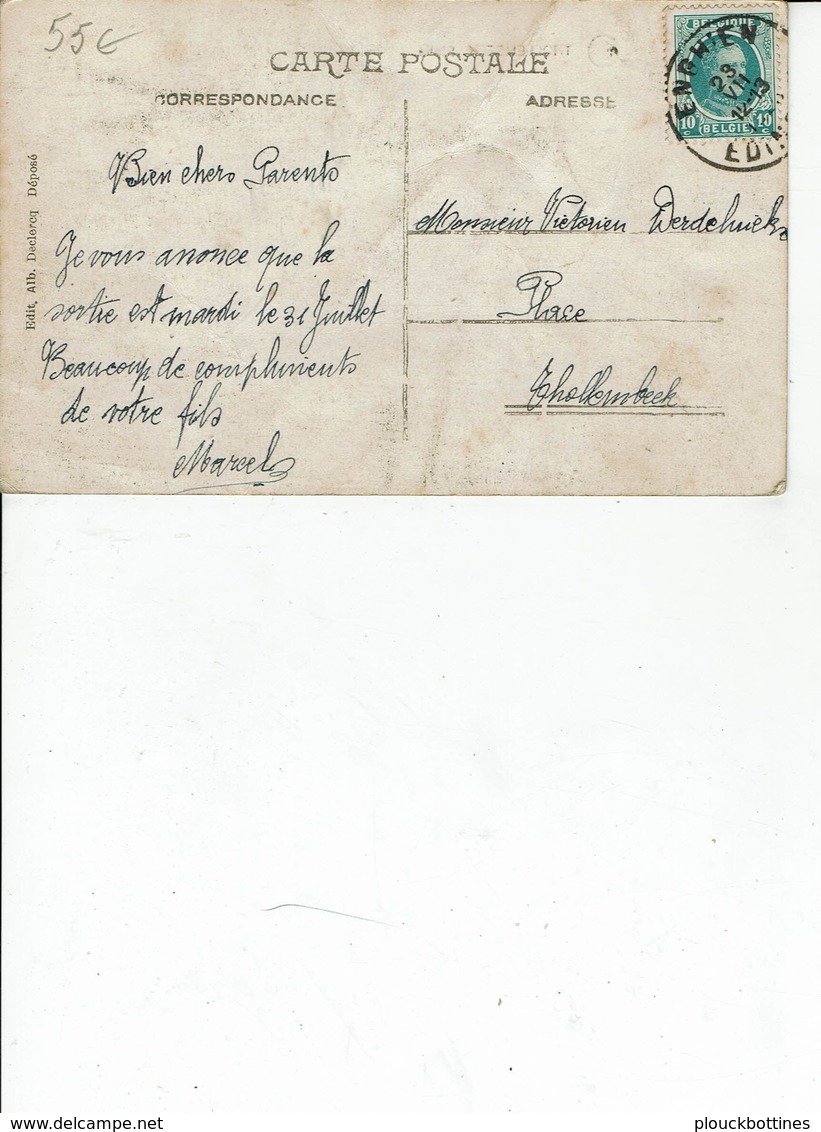 55€
CARTE POSTALE
CORRESPONDANCE
ADRESSE
BELGIQUE
10 c 10 c
BELGIË
ENGHIEN
23 VII
12-13
EDIN
Edit. Alb. Declercq Déposé
Bien chers Parents
Je vous anonce que la
sortie est mardi le 31 Juillet
Beaucoup de compliments
de votre fils
Marcel
Monsieur Victorien
Place
Thollembeek
delcampe.net
plouckbottines